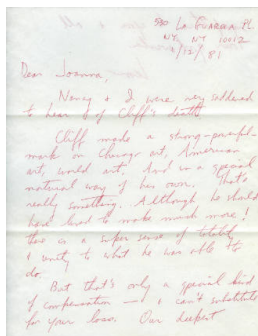 530 La Guardia Pl
NY, NY 10012
6/12/81
Dear Joanna,
Nancy & I were very saddened
to hear of Cliff's death.
Cliff made a strong-powerful-
mark on Chicago art, American
art, world art. And in a special
natural way of his own. That's
really something. Although he should
have lived to make much more!
there is a super sense of totality
& unity to what he was able to
do.
But that's only a special kind
of compensation — & can't substitute
for your loss. Our deepest